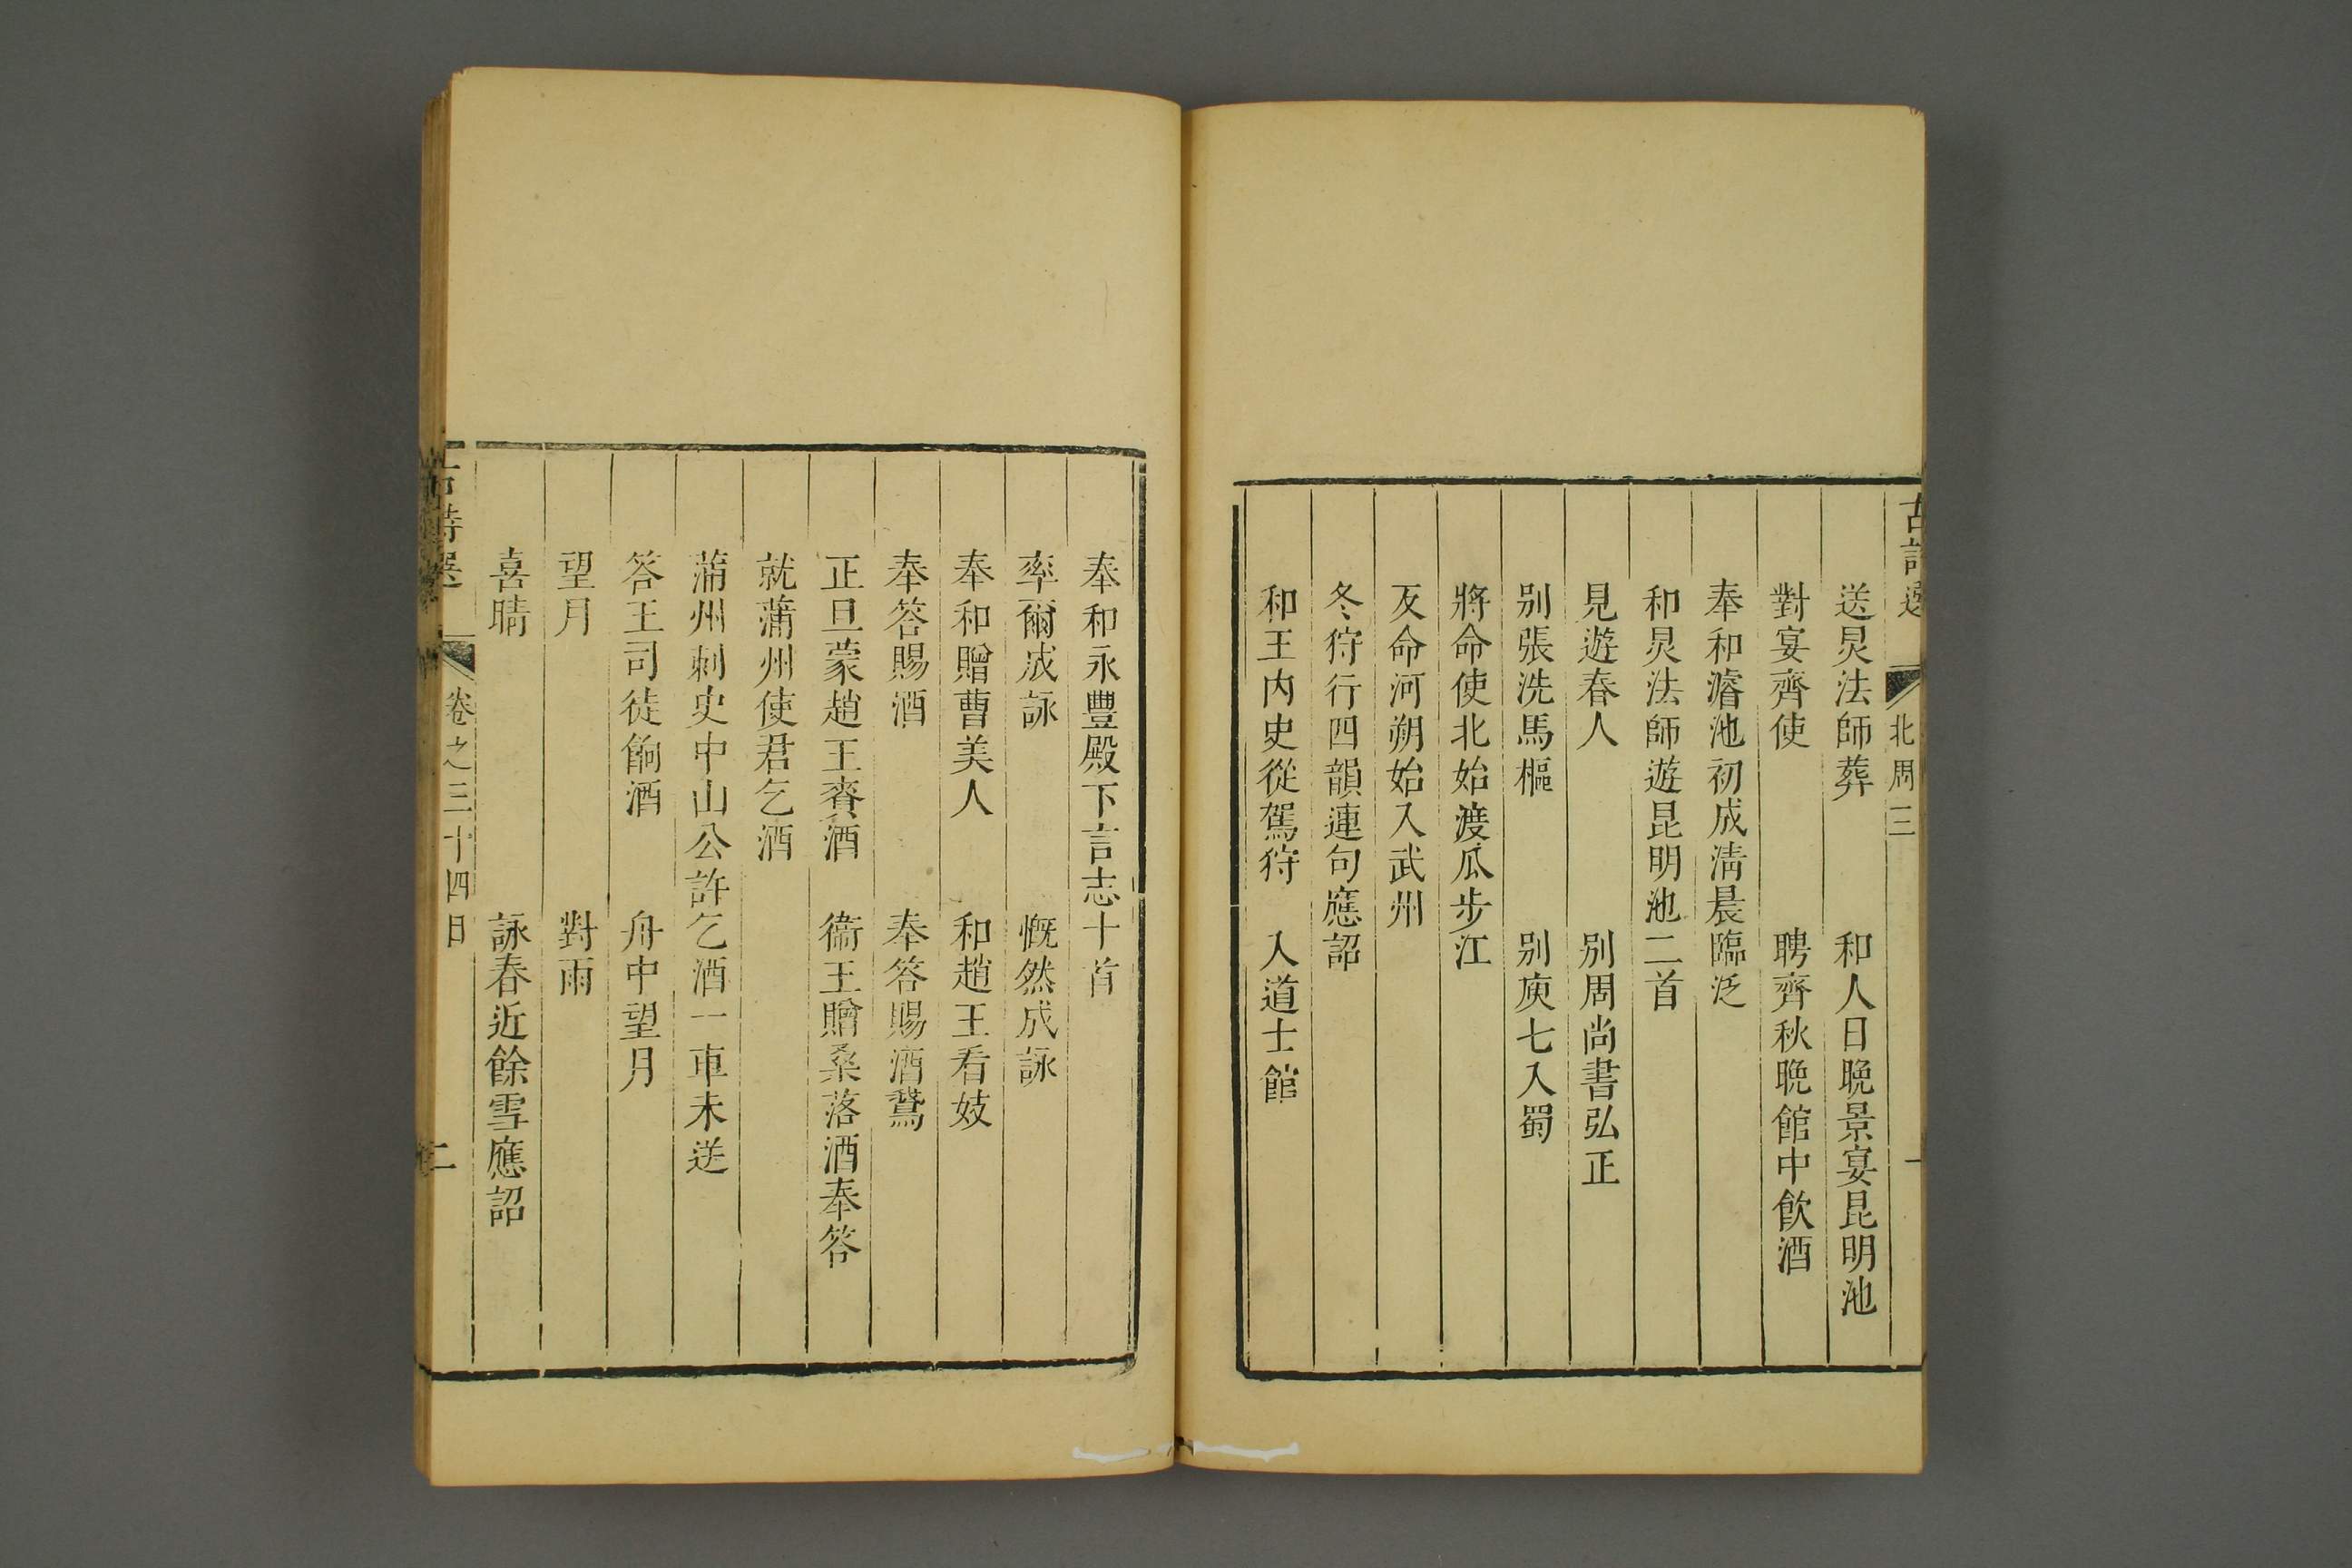 古詩選 北周三 一
送炅法師葬 和人日晚景宴昆明池
對宴齊使 聘齊秋晚館中飲酒
奉和濬池初成淸晨臨泛
和炅法師遊昆明池二首
見遊春人 別周尚書弘正
別張洗馬樞 別庾七入蜀
將命使北始渡瓜步江
反命河朔始入武州
冬狩行四韻連句應詔
和王内史從駕狩 入道士館
奉和永豐殿下言志十首
率爾成詠 慨然成詠
奉和贈曹美人 和趙王看妓
奉答賜酒 奉答賜酒鵞
正旦蒙趙王賚酒 衞王贈桑落酒奉答
就蒲州使君乞酒
蒲州刺史中山公許乞酒一車未送
答王司徒餉酒 舟中望月
望月 對雨
喜晴 詠春近餘雪應詔
古詩選 卷之三十四目 二